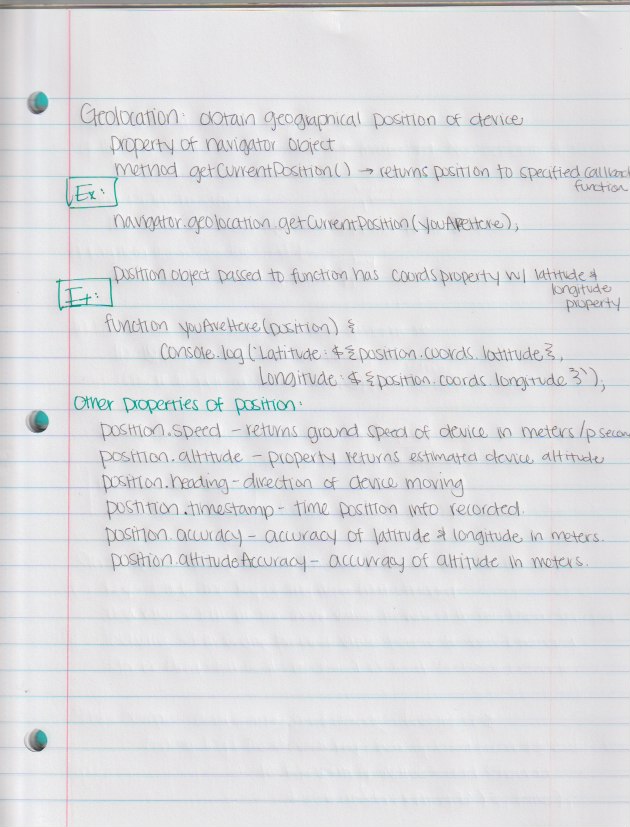 Geolocation: obtain geographical position of device
property of navigator object
method getCurrentPosition() → returns position to specified callback
function
Ex:
navigator.geolocation.getCurrentPosition(youAreHere);
position object passed to function has coords property w/ latitude &
longitude
property
Ex:
function youAreHere(position) {
console.log(`Latitude: ${position.coords.latitude},
Longitude: ${position.coords.longitude}`);
Other properties of position:
position.speed - returns ground speed of device in meters/p second
position.altitude - property returns estimated device altitude
position.heading - direction of device moving
postition.timestamp - time position info recorded.
position.accuracy - accuracy of latitude & longitude in meters.
position.altitudeAccuracy - accuracy of altitude in meters.